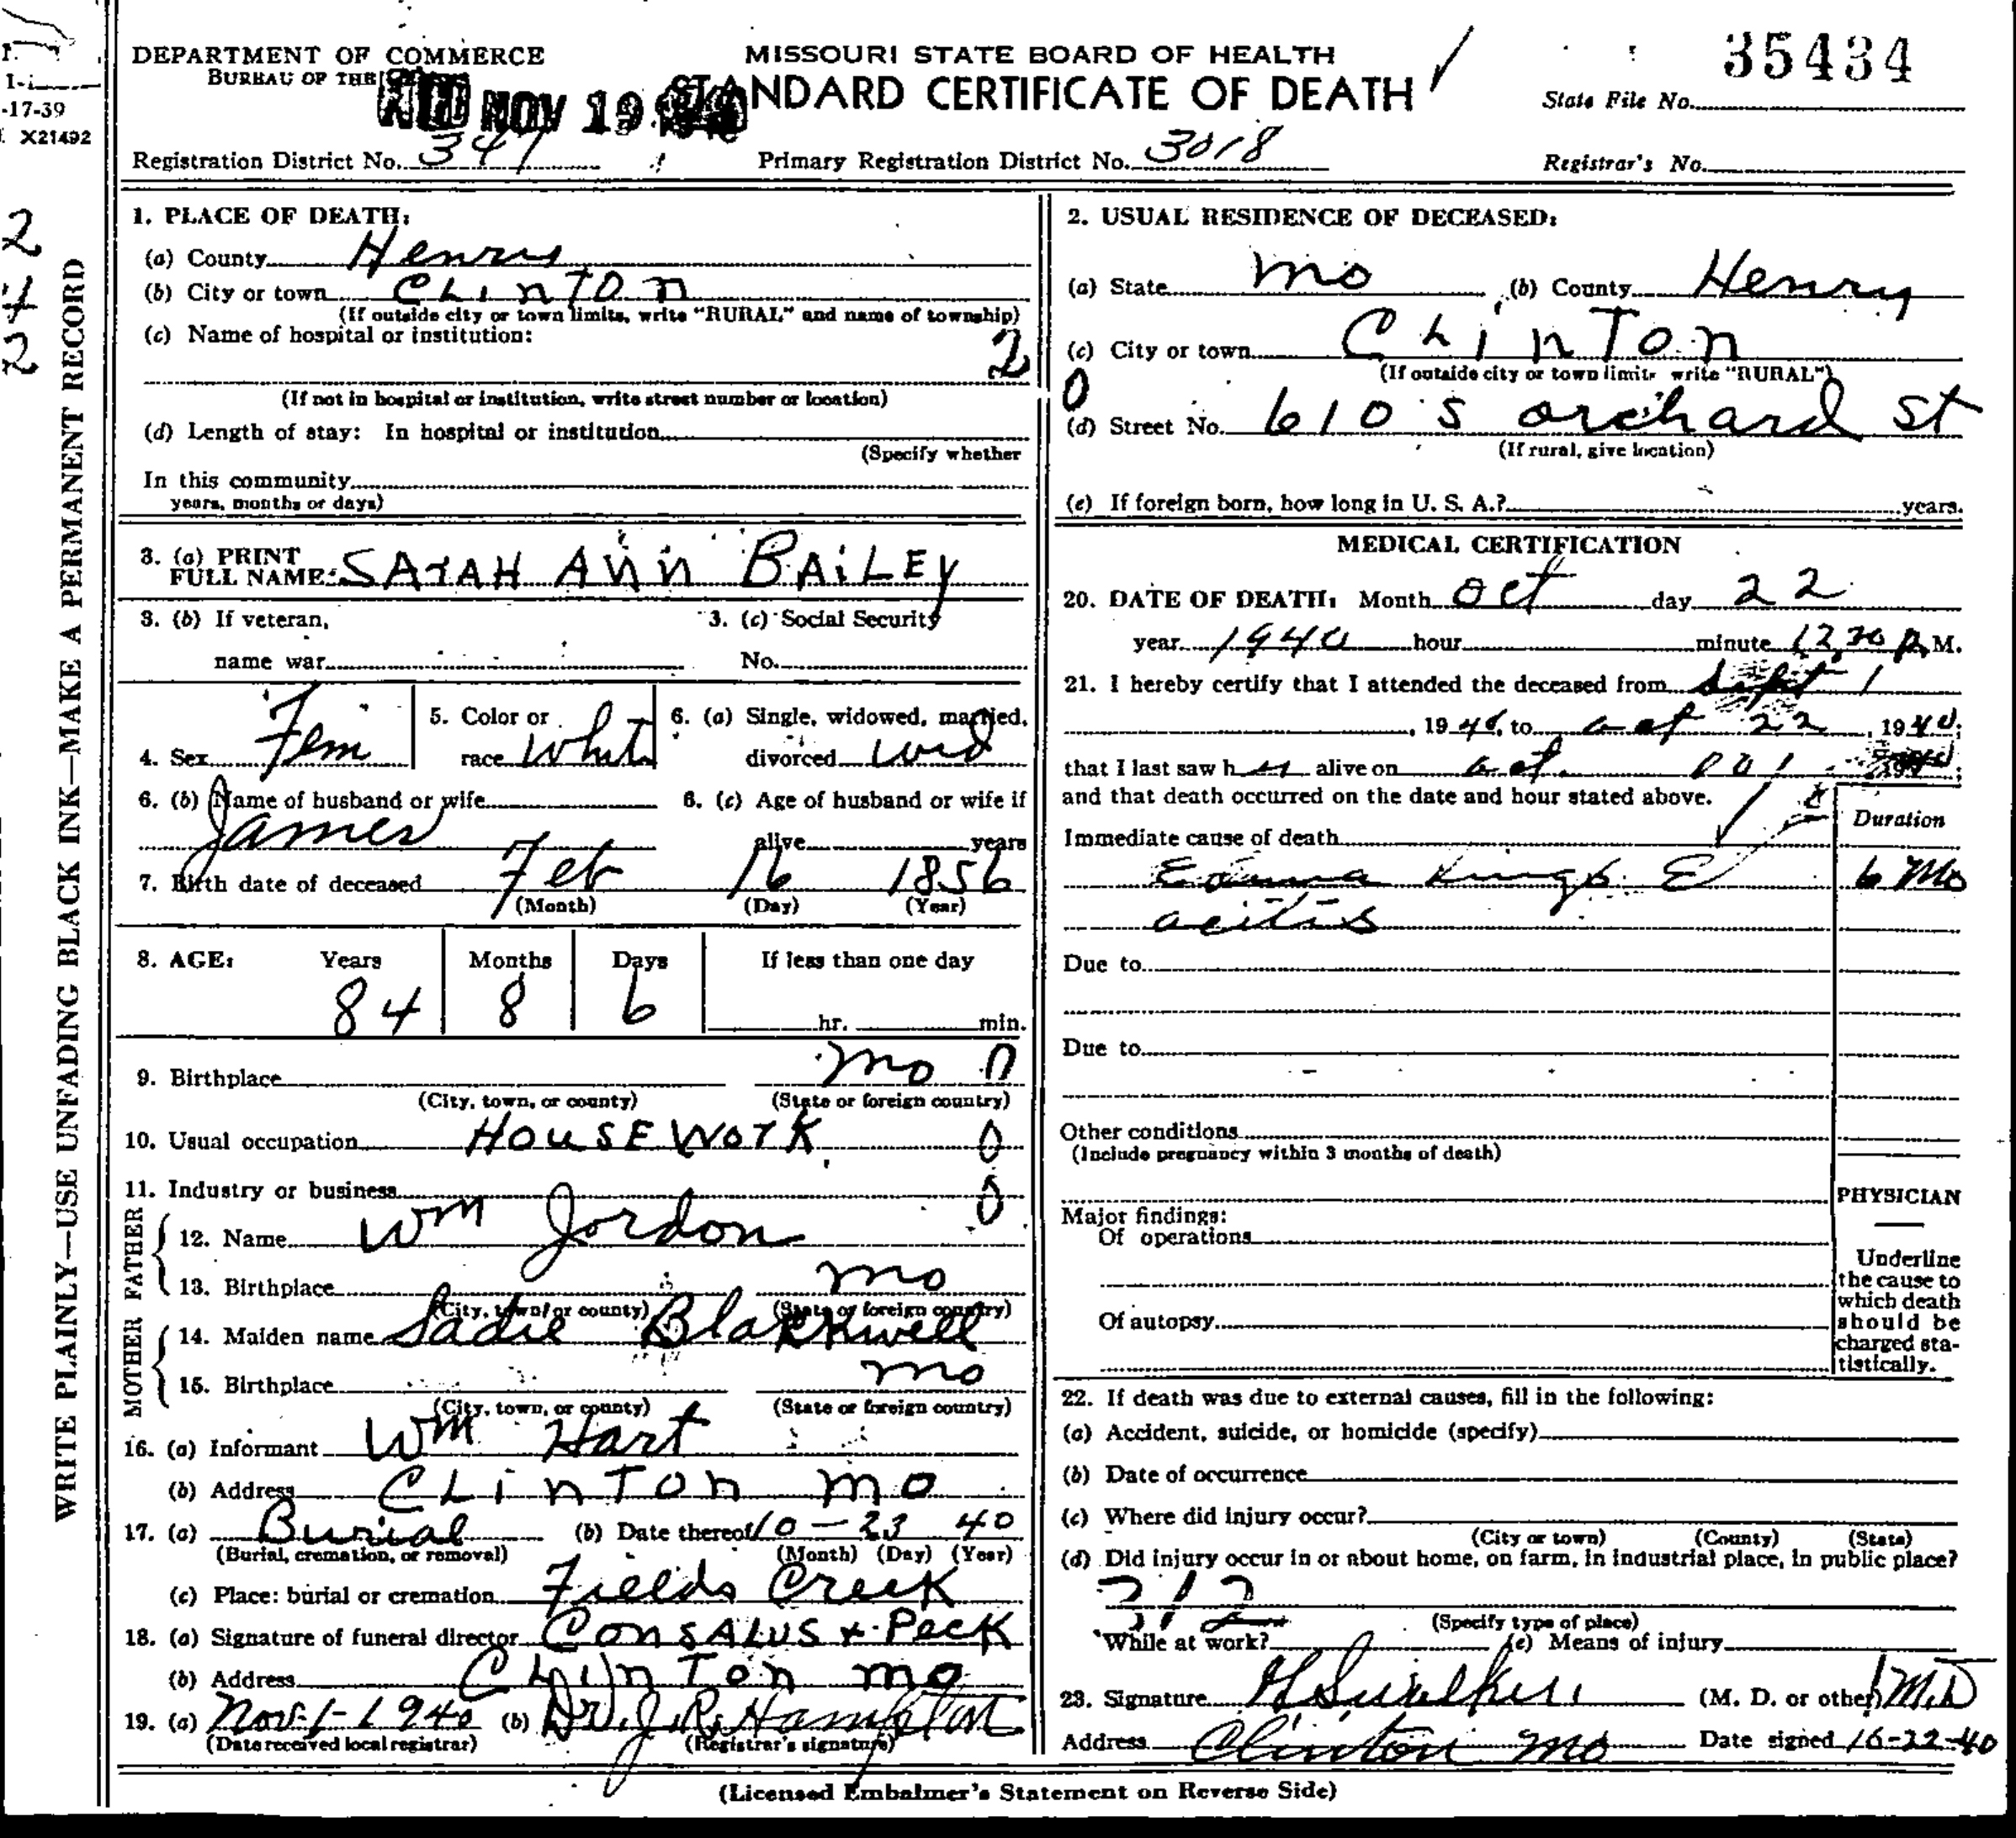 1-
-17-39
X21492
2
4
2
WRITE PLAINLY—USE UNFADING BLACK INK—MAKE A PERMANENT RECORD
DEPARTMENT OF COMMERCE
BUREAU OF THE
NOV 19
MISSOURI STATE BOARD OF HEALTH
STANDARD CERTIFICATE OF DEATH
State File No. 35434
Registration District No. 347
Primary Registration District No. 3018
Registrar's No.
1. PLACE OF DEATH:
(a) County Henry
(b) City or town CLINTON
(If outside city or town limits, write "RURAL" and name of township)
(c) Name of hospital or institution:
2
(If not in hospital or institution, write street number or location)
(d) Length of stay: In hospital or institution
(Specify whether
In this community
years, months or days)
2. USUAL RESIDENCE OF DECEASED:
(a) State Mo (b) County Henry
(c) City or town CLINTON
(If outside city or town limits write "RURAL")
0
(d) Street No. 610 S orchard St
(If rural, give location)
(e) If foreign born, how long in U. S. A.? years.
3. (a) PRINT
FULL NAME SArAH Ann BAiLEy
3. (b) If veteran,
name war
3. (c) Social Security
No.
4. Sex Fem
5. Color or
race Whit
6. (a) Single, widowed, married,
divorced wid
6. (b) Name of husband or wife
James
6. (c) Age of husband or wife if
alive years
7. Birth date of deceased Feb 16 1856
(Month) (Day) (Year)
8. AGE: Years Months Days If less than one day
84 8 6 hr. min.
9. Birthplace Mo 0
(City, town, or county) (State or foreign country)
10. Usual occupation HOUSEWOrK 0
11. Industry or business 0
FATHER
12. Name Wm Jordon
13. Birthplace Mo
(City, town, or county) (State or foreign country)
MOTHER
14. Maiden name Sadie Blackwell
15. Birthplace Mo
(City, town, or county) (State or foreign country)
16. (a) Informant Wm Hart
(b) Address CLinTon Mo
17. (a) Burial (b) Date thereof 10-23 40
(Burial, cremation, or removal) (Month) (Day) (Year)
(c) Place: burial or cremation Fields Creek
18. (a) Signature of funeral director ConSALUS + Peck
(b) Address CLinTon Mo
19. (a) Nov-1-1940 (b) Dr. J. R. Hampton
(Date received local registrar) (Registrar's signature)
MEDICAL CERTIFICATION
20. DATE OF DEATH: Month Oct day 22
year 1940 hour minute 12.30 P. M.
21. I hereby certify that I attended the deceased from Sept 1
, 1940, to Oct 22, 1940;
that I last saw h er alive on Oct.
and that death occurred on the date and hour stated above.
Immediate cause of death
Duration
6 Mo
Due to
Due to
Other conditions
(Include pregnancy within 3 months of death)
Major findings:
Of operations
Of autopsy
PHYSICIAN
Underline
the cause to
which death
should be
charged sta-
tistically.
22. If death was due to external causes, fill in the following:
(a) Accident, suicide, or homicide (specify)
(b) Date of occurrence
(c) Where did injury occur?
(City or town) (County) (State)
(d) Did injury occur in or about home, on farm, in industrial place, in public place?
212
(Specify type of place)
While at work? (e) Means of injury
23. Signature (M. D. or other) M.D
Address Clinton Mo Date signed 10-22-40
(Licensed Embalmer's Statement on Reverse Side)